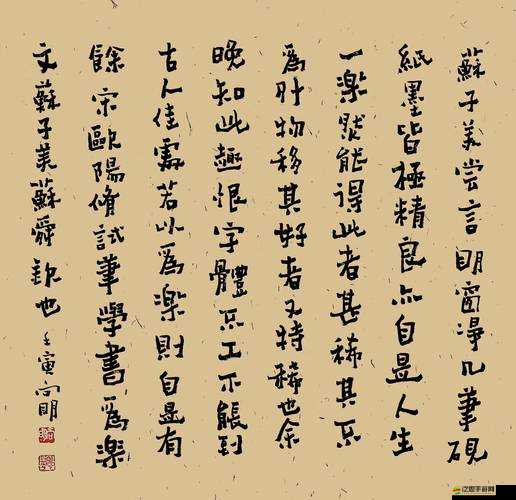 蘇子美嘗言明窗淨几筆硯
紙墨皆極精良亦自是人生
一樂然能得此者甚稀其不
爲外物移其好者又特稀也余
晚知此趣恨字體不工不能到
古人佳處若以爲樂則自是有
餘宋歐陽脩試筆學書爲樂
文蘇子美蘇舜欽也
壬寅向明